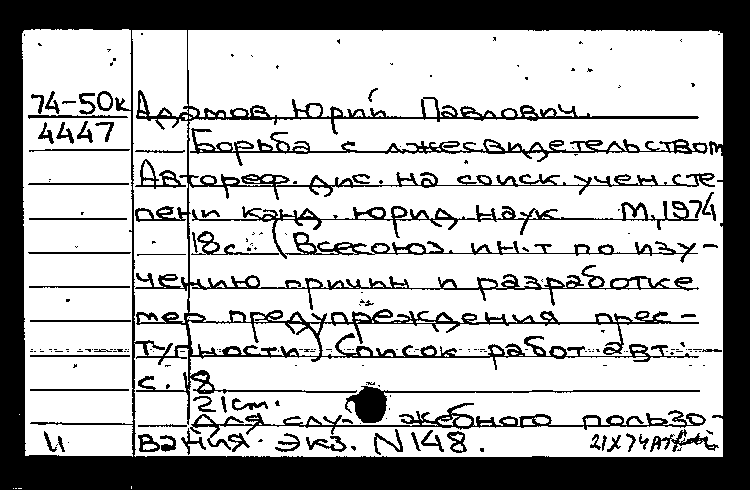 74-50к Адамов, Юрий Павлович.
4447
Борьба с лжесвидетельством
Автореф. дис. на соиск. учен. сте-
пени канд. юрид. наук. М., 1974.
18с. (Всесоюз. ин-т по изу-
чению причин и разработке
мер предупреждения прес-
тупности). Список работ авт.:
с. 18
21cm.
Для служебного пользо-
U вания. Экз. N148. 21X74